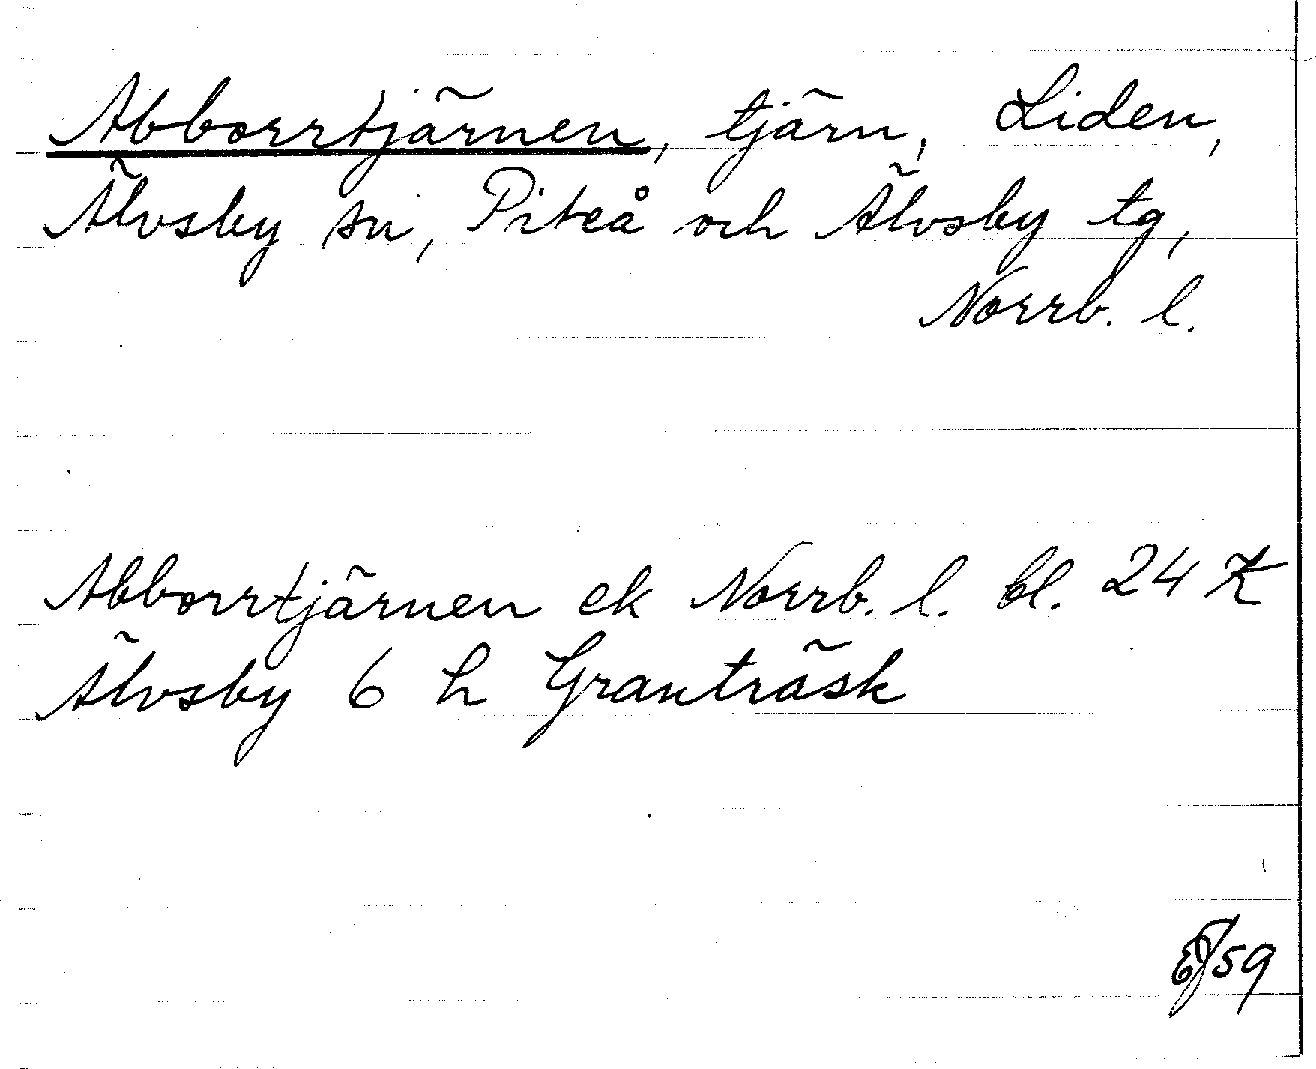 Abborrtjärnen, tjärn, Liden,
Älvsby sn, Piteå och Älvsby tg,
Norrb. l.
Abborrtjärnen ek Norrb. l. bl. 24 K
Älvsby 6 h Granträsk
/59